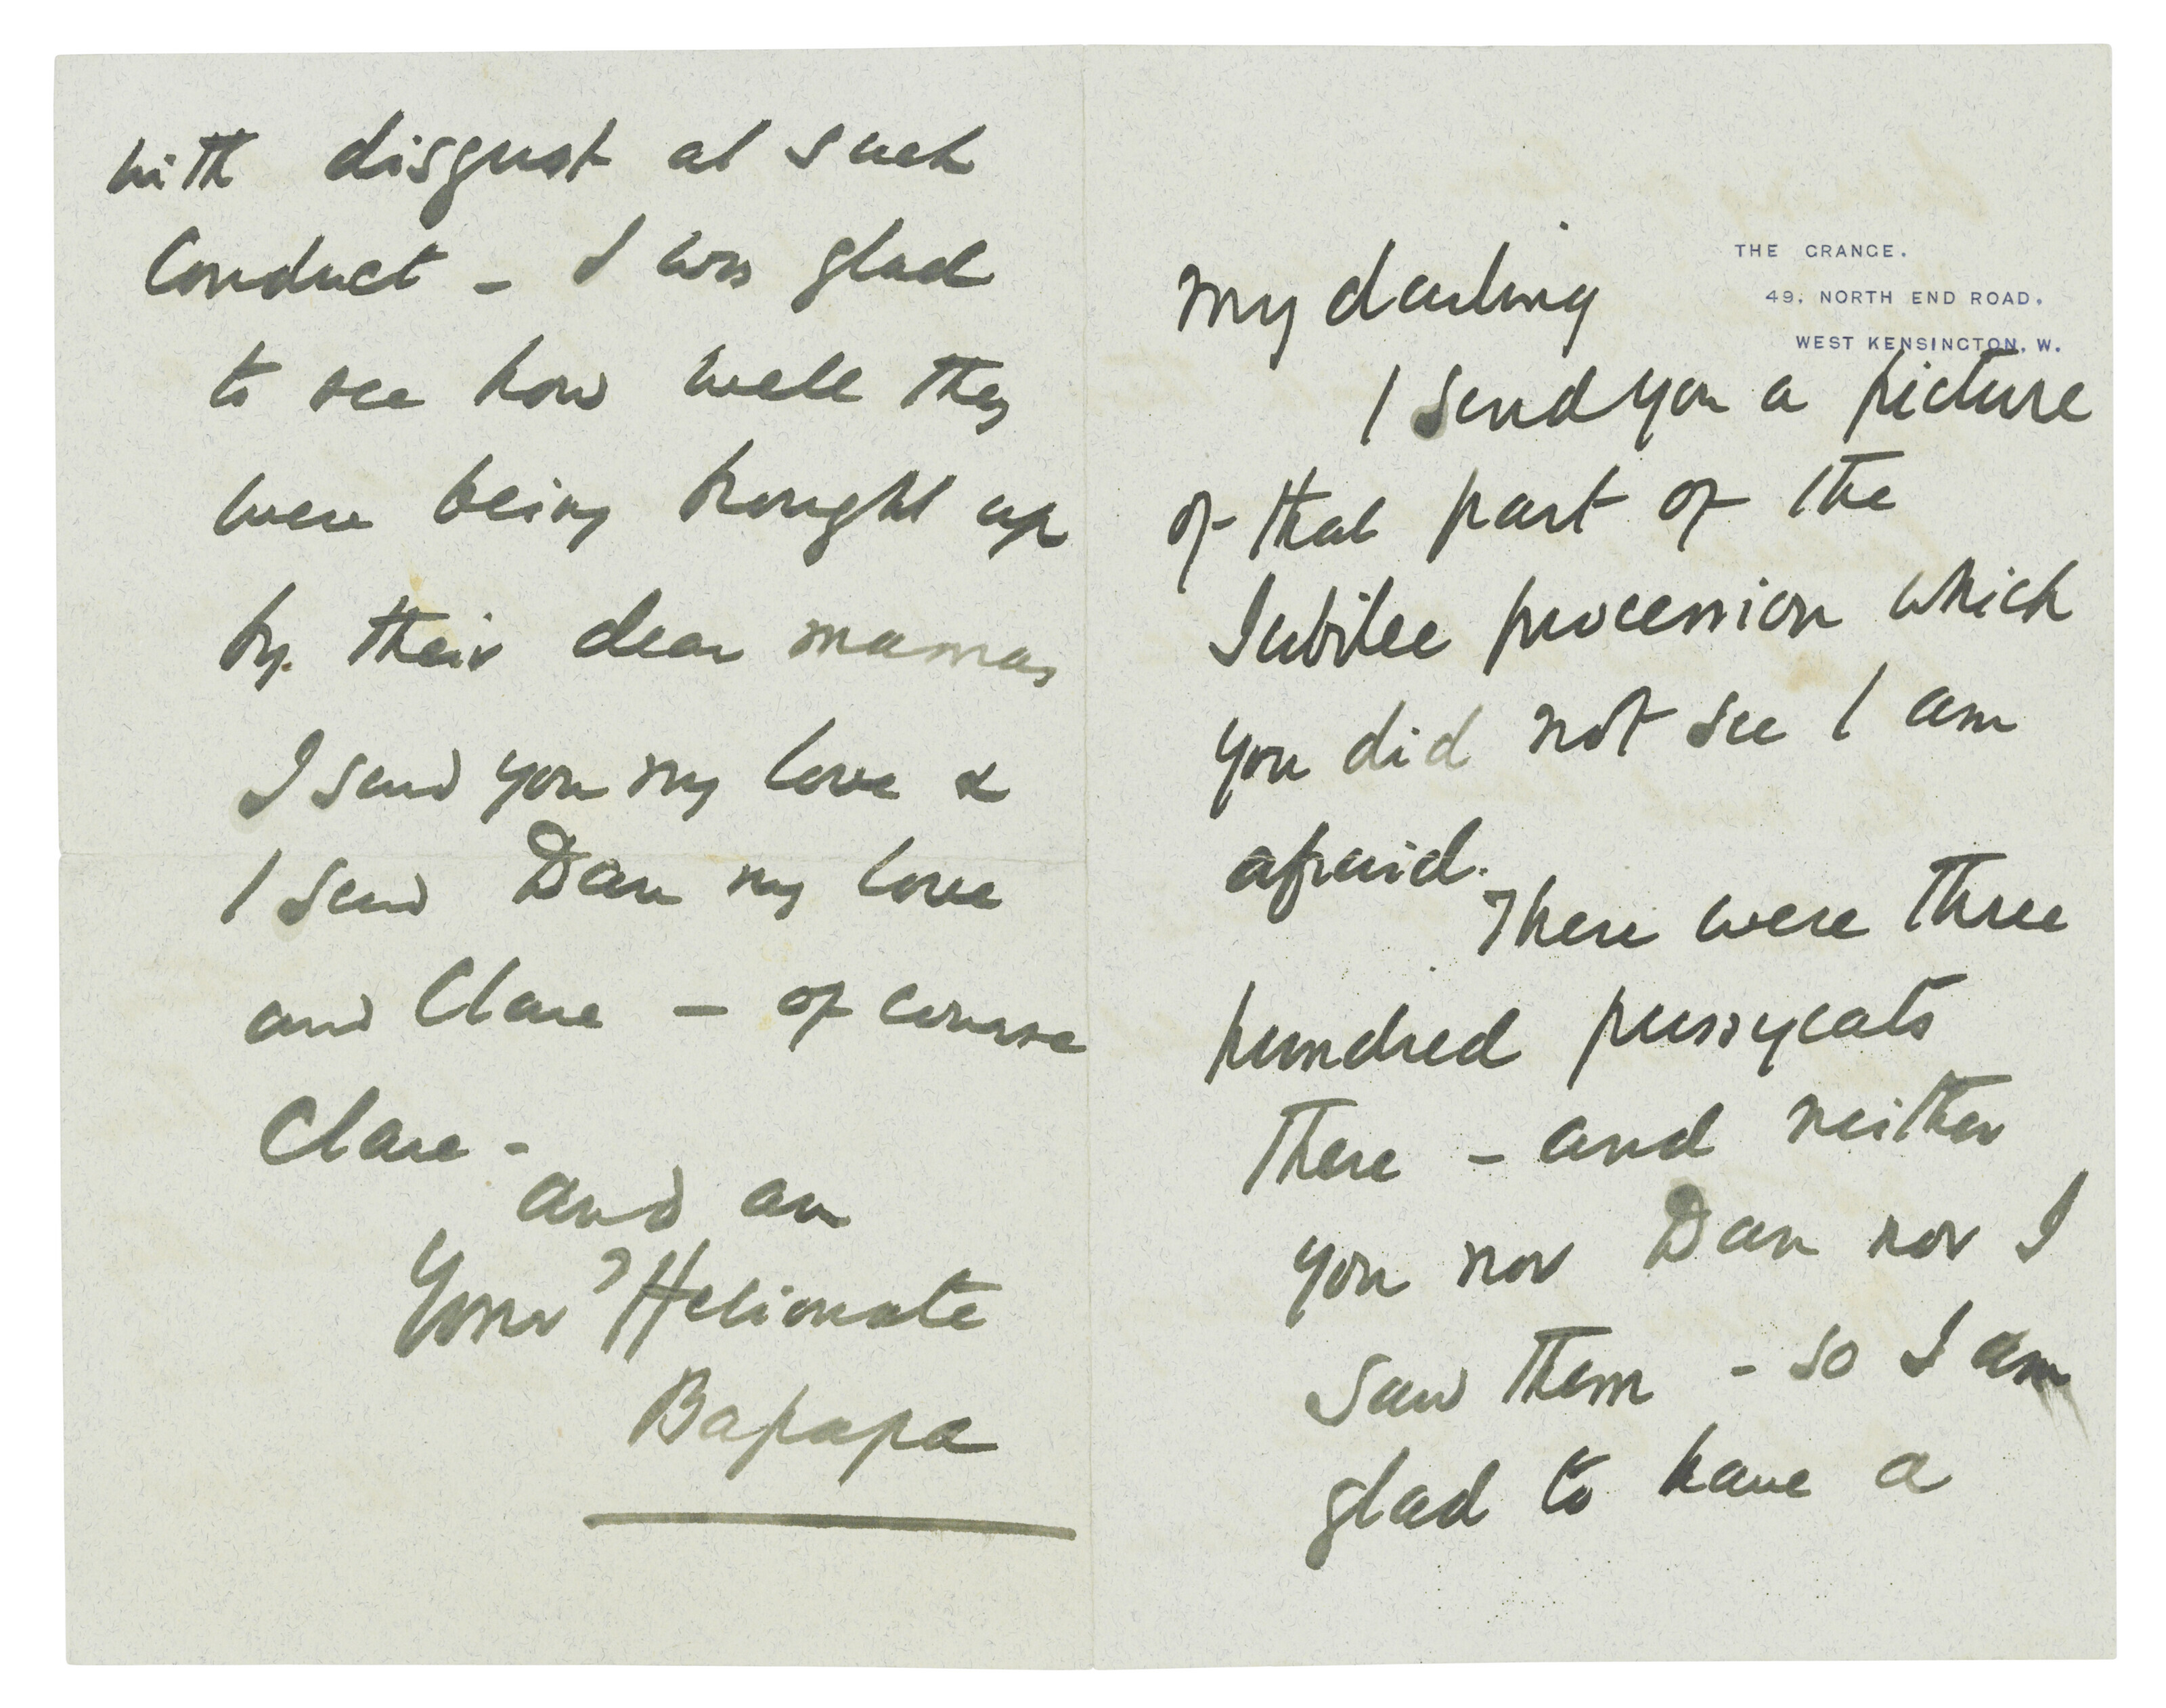 with disgust at such
conduct - I was glad
to see how well they
were being brought up
by their dear mamas
I send you my love &
I send Dan my love
and Clare - of course
Clare -
and am
Your 'ffecionate
Bapapa
THE GRANGE.
49, NORTH END ROAD.
WEST KENSINGTON. W.
my darling
I send you a picture
of that part of the
Jubilee procession which
you did not see I am
afraid.
There were three
hundred pussycats
there - and neither
you nor Dan nor I
saw them - so I am
glad to have a